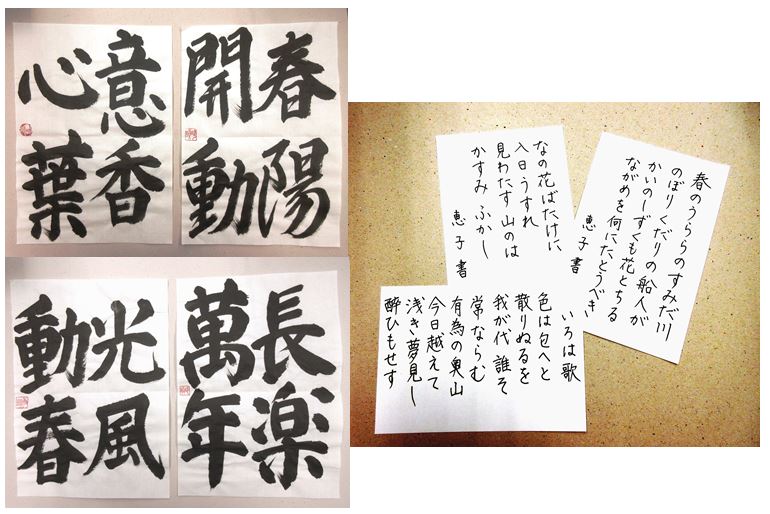 春陽
開動
意香
心葉
長楽
萬年
光風
動春
春のうららのすみだ川
のぼりくだりの船人が
かいのしずくも花とちる
ながめを何にたとうべき
恵子書
なの花ばたけに
入日うすれ
見わたす山のは
かすみ ふかし
恵子書
いろは歌
色は匂へと
散りぬるを
我が代 誰そ
常ならむ
有為の奥山
今日越えて
浅き夢見し
酔ひもせす